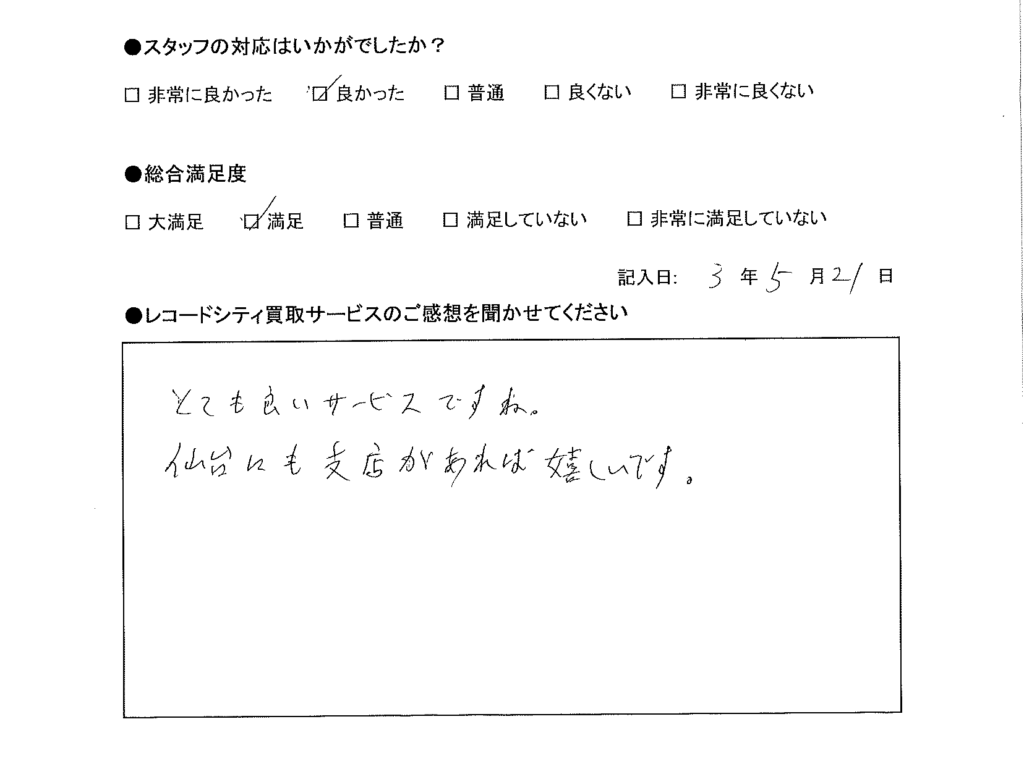 ●スタッフの対応はいかがでしたか？
□ 非常に良かった ☑ 良かった □ 普通 □ 良くない □ 非常に良くない
●総合満足度
□ 大満足 ☑ 満足 □ 普通 □ 満足していない □ 非常に満足していない
記入日: 3 年 5 月 21 日
●レコードシティ買取サービスのご感想を聞かせてください
とても良いサービスですね。
仙台にも支店があれば嬉しいです。